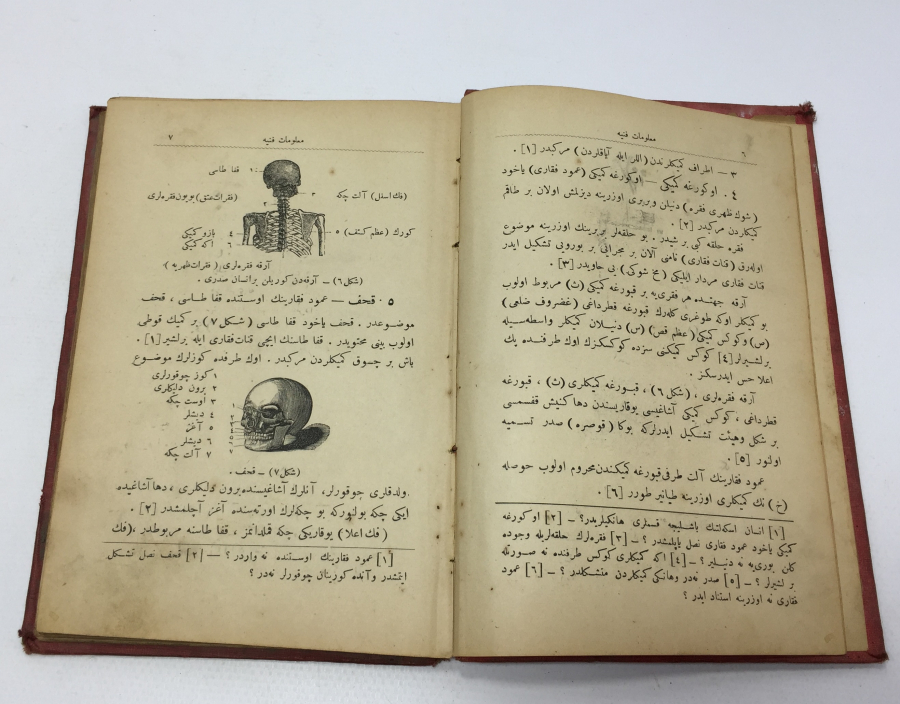 ٦
معلومات فنيه
٣ — اطراف كميكلرندن (اللر ايله آياقلردن) مركبدر [١] .
٤ . اوكورغه كميكى — اوكورغه كميكى (عمود فقارى) ياخود
(شوك ظهرى فقره) دنيلن وبربرى اوزرينه ديزلمش اولان بر طاقم
كميكلردن مركبدر [٢] .
فقره حلقه كبى بر شيدر . بو حلقه‌لر بربرينك اوزرينه موضوع
اوله‌رق (قنات فقارى) نامنى آلان بر مجرايى بر بورويى تشكيل ايدر
قنات فقارى مردار ايليكى (مخ شوكى) يى حاويدر [٣] .
آرقه جهتنده هر فقره‌يه بر قبورغه كميكى (ث) مربوط اولوب
بو كميكلر اوكه طوغرى كله‌رك قبورغه قطرداغى (غضروف ضلعى)
(ص) وكوكس كميكى (عظم قص) (س) دنيلان كميكلر واسطه‌سيله
برلشيرلر [٤] كوكس كميكنى سزده كوكسكزك اوك طرفنده پك
اعلا حس ايدرسكز .
آرقه فقره‌لرى ، (شكل ٦) ، قبورغه كميكلرى (ث) ، قبورغه
قطرداغى ، كوكس كميكى آشاغيسى يوقاريسندن دها كنيش قفسمى
بر شكل وهيئت تشكيل ايدرلركه بوكا (قوصره) صدر تسميه
اولنور [٥] .
عمود فقارينك آلت طرفى قبورغه كميكندن محروم اولوب حوصله
(خ) نك كميكلرى اوزرينه طيانير طورر [٦] .
[١] انسان اسكلتنك باشليجه قسملرى هانكيلريدر؟ — [٢] اوكورغه
كميكى ياخود عمود فقارى نصل ياپلمشدر؟ — [٣] فقره‌لرك حلقه‌لريله وجوده
كلن بورى‌يه نه دنيلير؟ — [٤] اكه كميكلرى كوكس طرفنده نه صورتله
برلشيرلر؟ — [٥] صدر نه‌در وهانكى كميكلردن متشكلدر؟ — [٦] عمود
فقارى نه اوزرينه استناد ايدر؟
معلومات فنيه
٧
١ قفا طاسى
(فك اسفل) آلت چكه ٣
٢ (فقرات عنق) بويون فقره‌لرى
كورك (عظم كتف) ٥
٤ بازو كميكى
٦ اكه كميكى
آرقه فقره‌لرى (فقرات ظهريه)
(شكل ٦) — آرقه‌دن كوريلن بر انسان صدرى .
٥ . قحف — عمود فقارينك اوستنده قفا طاسى ، قحف
موضوعدر . قحف ياخود قفا طاسى (شكل ٧) بر كميك قوطى
اولوب بينى محتويدر . قفا طاسنك ايچى قنات فقارى ايله برلشير [١] .
باش بر چوق كميكلردن مركبدر . اوك طرفده كوزلرك موضوع
١ كوز چوقورلرى
٢ برون دليكلرى
٣ اوست چكه
٤ ديشلر
٥ آغز
٦ ديشلر
٧ آلت چكه
١
٢
٣
٤
٥
٦
٧
(شكل ٧) — قحف .
ولدقلرى چوقورلر ، آنلرك آشاغيسنده برون دليكلرى ، دها آشاغيده
ايكى چكه بولنوركه بو چكه‌لرك اورته‌سنده آغز آچلمشدر [٢] .
(فك اعلا) يوقاريكى چكه قملدانمز ، قفا طاسنه مربوطدر ، (فك
[١] عمود فقارينك اوستنده نه واردر؟ — [٢] قحف نصل تشكل
ايتمشدر وآنده كورينان چوقورلر نه‌در؟